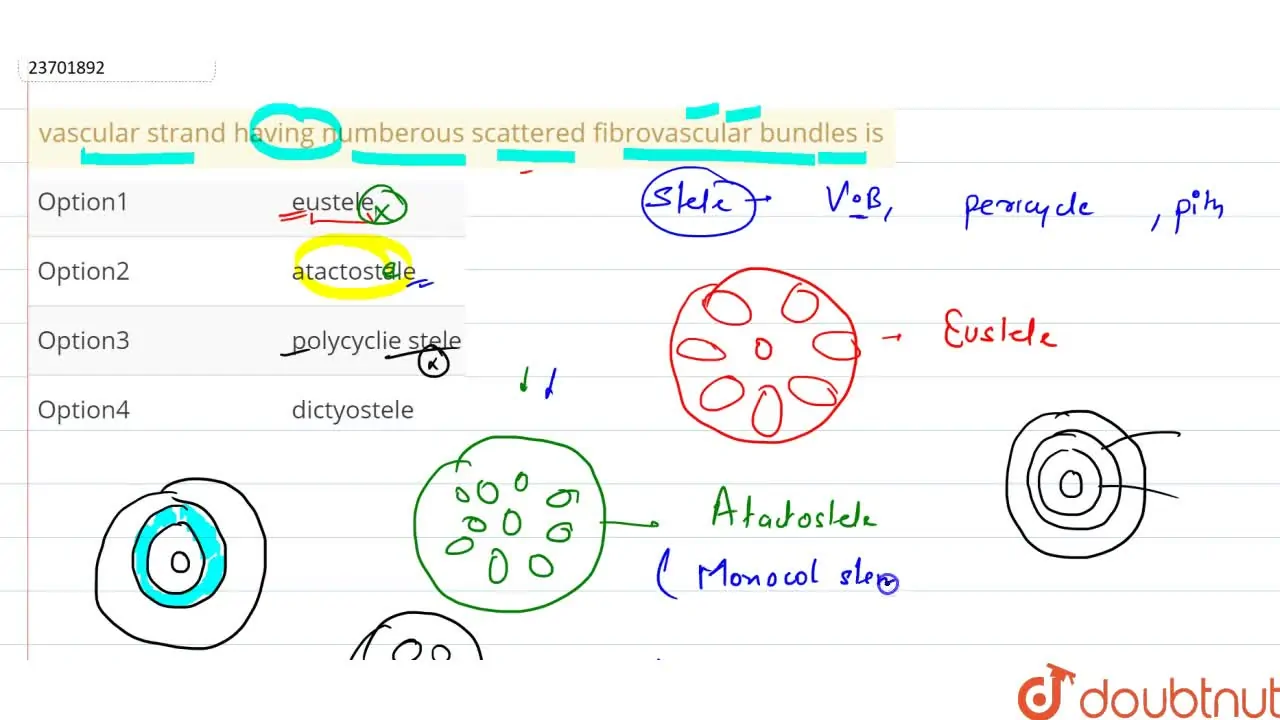 23701892
vascular strand having numberous scattered fibrovascular bundles is
Option1 eustele x
Stele → V.B, pericycle, pith
Option2 atactostale e
Eustele
Option3 polycyclie stele x
Option4 dictyostele
Atactostele
(Monocot stem
doubtnut